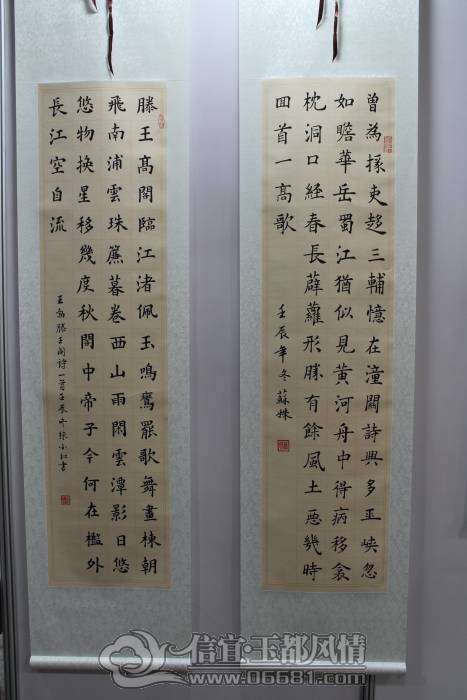 曾為掾吏趍三輔憶在潼關詩興多巫峽忽
如瞻華岳蜀江猶似見黃河舟中得病移衾
枕洞口經春長薜蘿形勝有餘風土惡幾時
回首一高歌
壬辰年冬蘇姝
滕王高閣臨江渚佩玉鳴鸞罷歌舞畫棟朝
飛南浦雲珠簾暮卷西山雨閑雲潭影日悠
悠物換星移幾度秋閣中帝子今何在檻外
長江空自流
王勃滕王閣詩一首壬辰冬書
信宜·玉都风情
www.06681.com